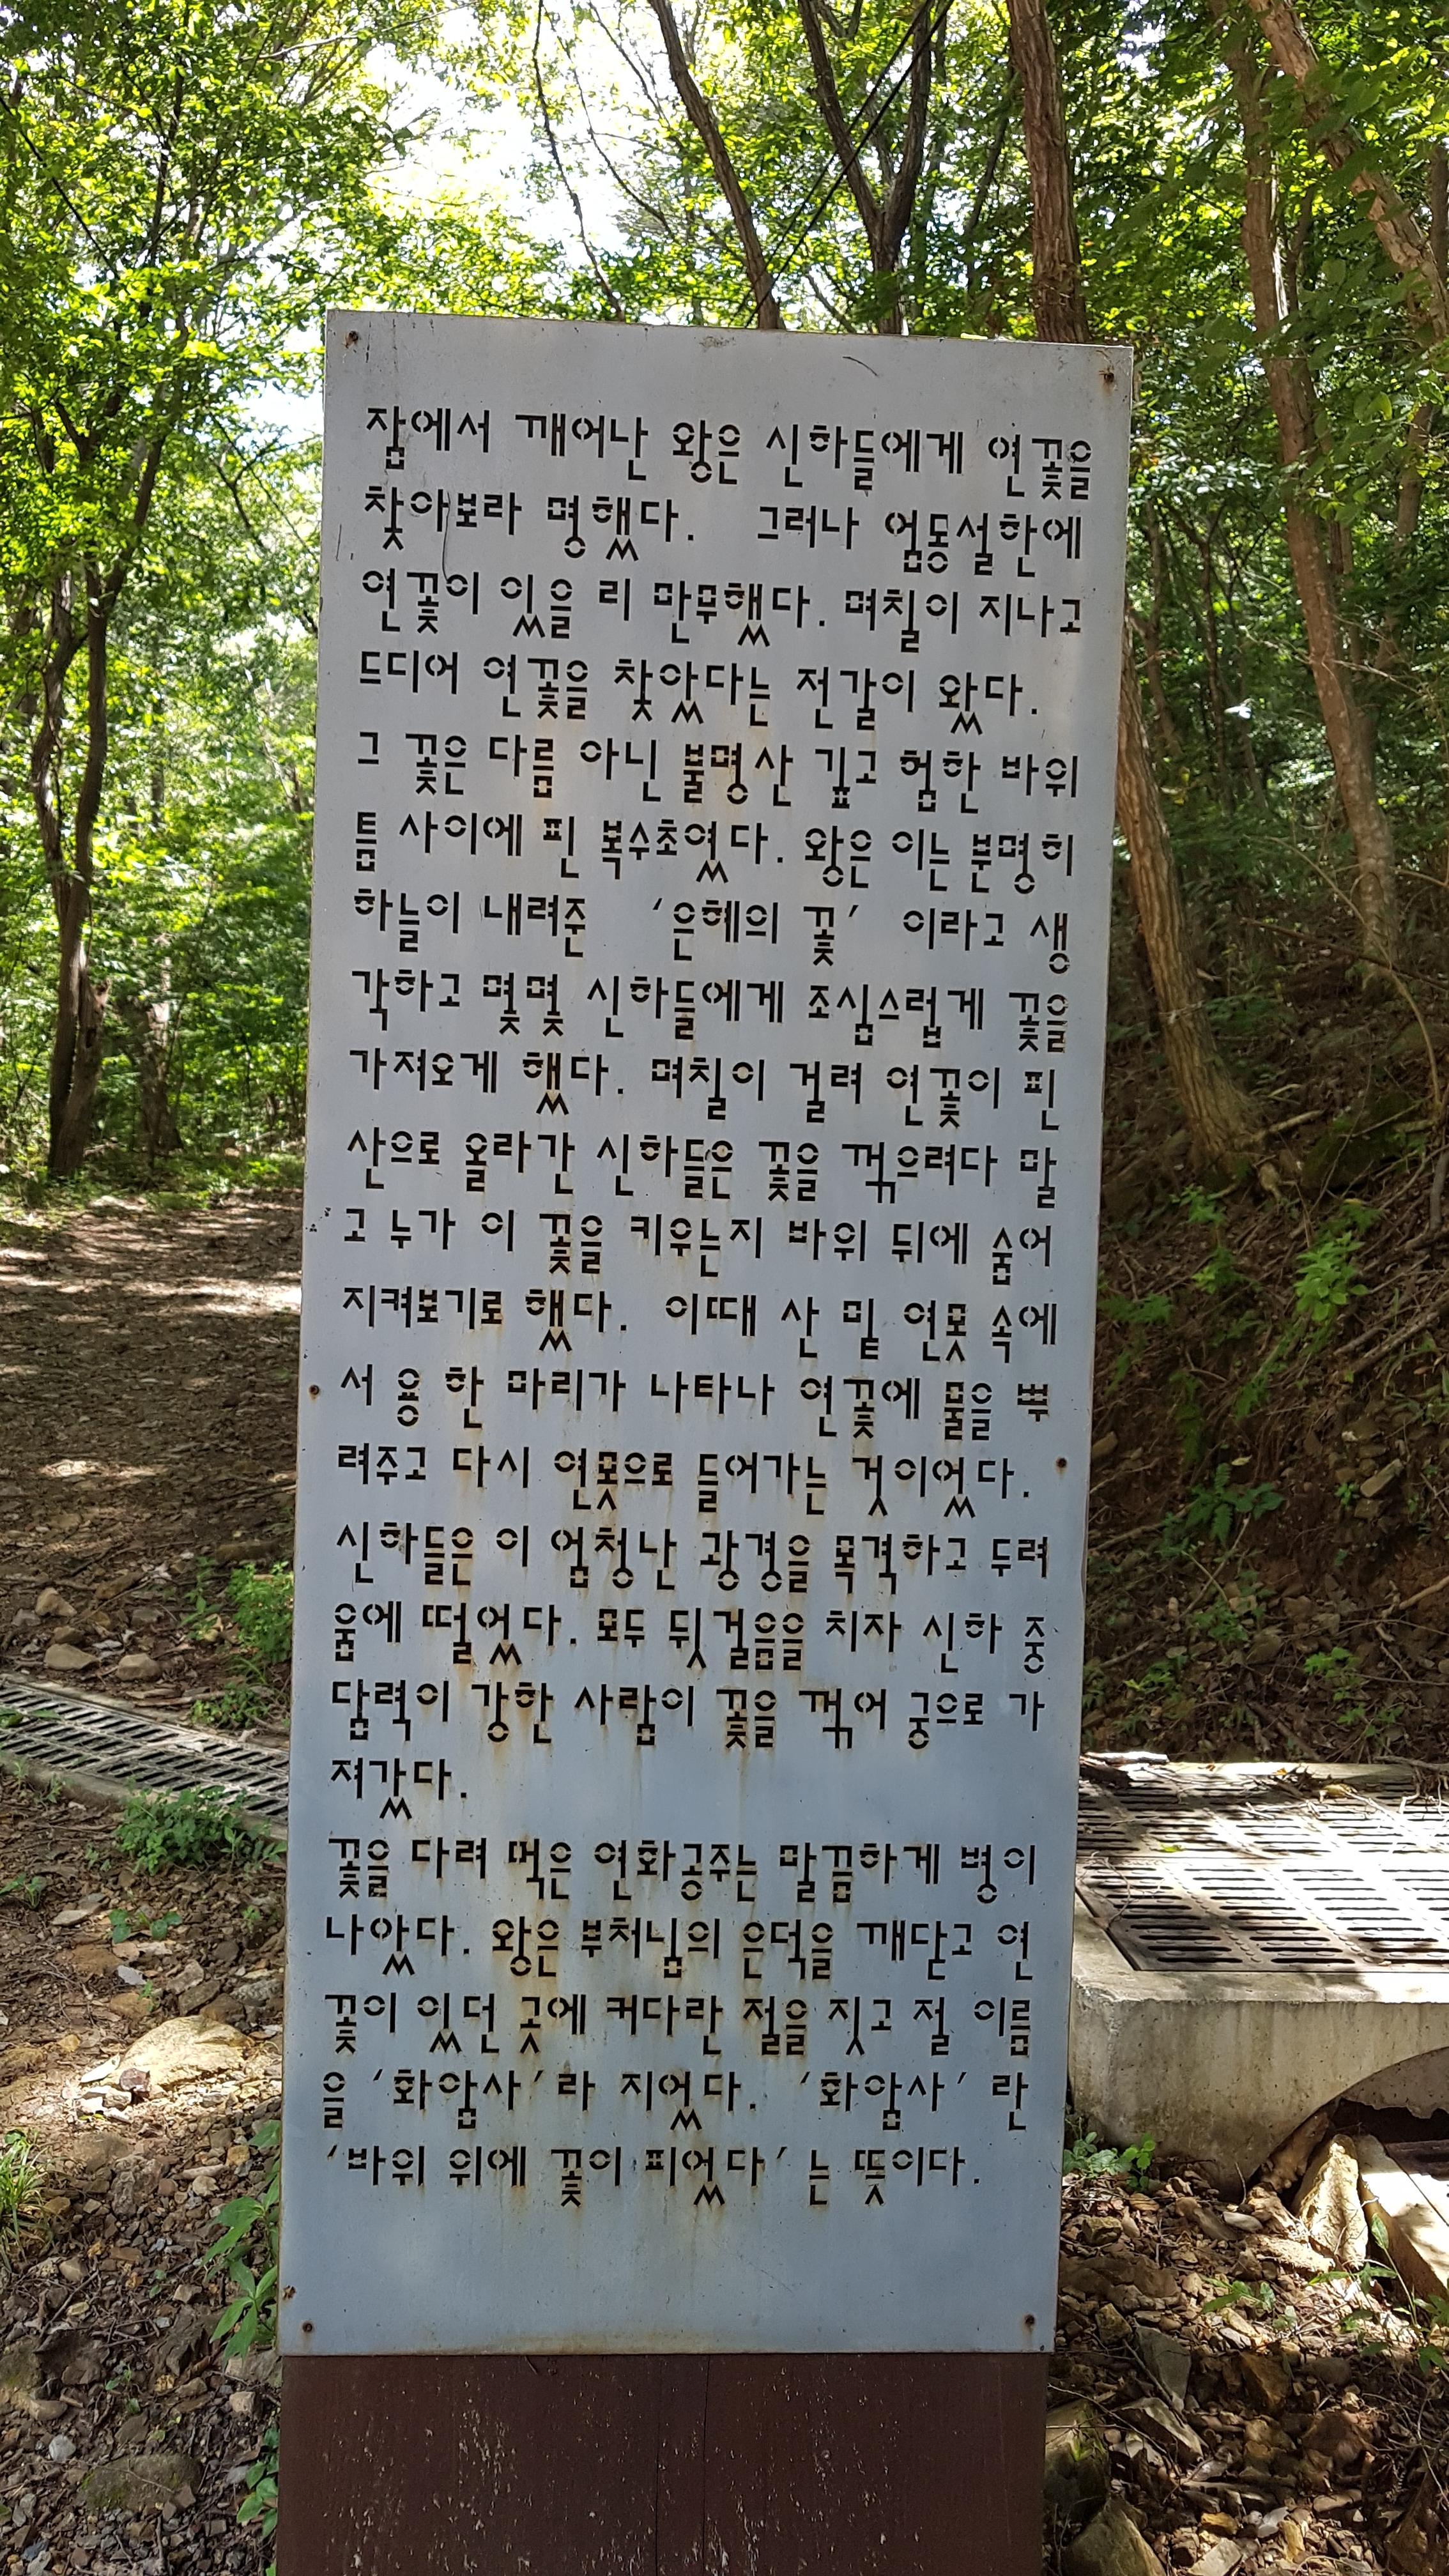 잠에서 깨어난 왕은 신하들에게 연꽃을
찾아보라 명했다. 그러나 엄동설한에
연꽃이 있을 리 만무했다. 며칠이 지나고
드디어 연꽃을 찾았다는 전갈이 왔다.
그 꽃은 다름 아닌 불명산 깊고 험한 바위
틈 사이에 핀 복수초였다. 왕은 이는 분명히
하늘이 내려준 ‘은혜의 꽃’ 이라고 생
각하고 몇몇 신하들에게 조심스럽게 꽃을
가져오게 했다. 며칠이 걸려 연꽃이 핀
산으로 올라간 신하들은 꽃을 꺾으려다 말
고 누가 이 꽃을 키우는지 바위 뒤에 숨어
지켜보기로 했다. 이때 산 밑 연못 속에
서 용 한 마리가 나타나 연꽃에 물을 뿌
려주고 다시 연못으로 들어가는 것이었다.
신하들은 이 엄청난 광경을 목격하고 두려
움에 떨었다. 모두 뒷걸음을 치자 신하 중
담력이 강한 사람이 꽃을 꺾어 궁으로 가
져갔다.
꽃을 다려 먹은 연화공주는 말끔하게 병이
나았다. 왕은 부처님의 은덕을 깨닫고 연
꽃이 있던 곳에 커다란 절을 짓고 절 이름
을 ‘화암사’라 지었다. ‘화암사’ 란
‘바위 위에 꽃이 피었다’는 뜻이다.